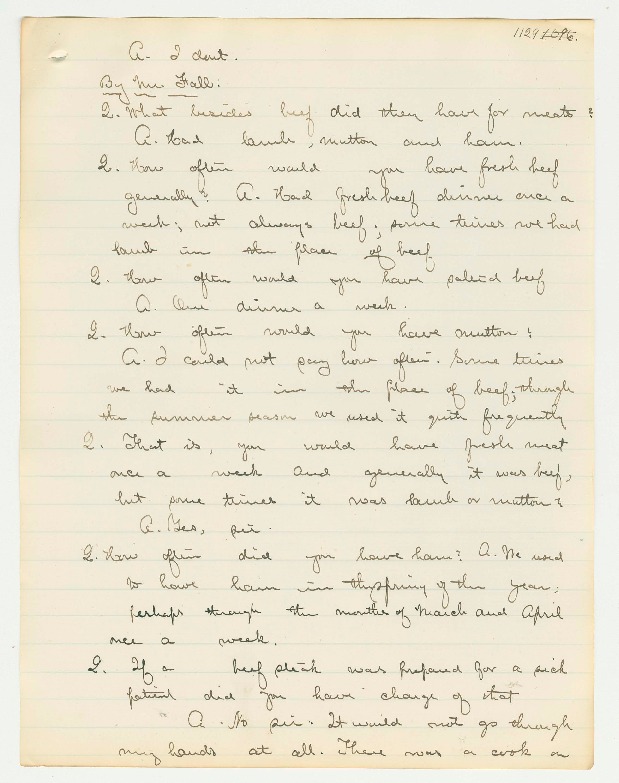 1129
A. I dont.
By Mr Fall:
Q. What besides beef did they have for meats?
A. Had lamb, mutton and ham.
Q. How often would you have fresh beef
generally? A. Had fresh beef dinner once a
week; not always beef; some times we had
lamb in the place of beef
Q. How often would you have salted beef
A. One dinner a week.
Q. How often would you have mutton?
A. I could not say how often. Some times
we had it in the place of beef; through
the summer season we used it quite frequently
Q. That is, you would have fresh meat
once a week and generally it was beef,
but some times it was lamb or mutton?
A. Yes, sir.
Q. How often did you have ham? A. We used
to have ham in the spring of the year,
perhaps through the months of March and April
once a week.
Q. If a beef steak was prepared for a sick
patient did you have charge of that
A. No sir. It would not go through
my hands at all. There was a cook on